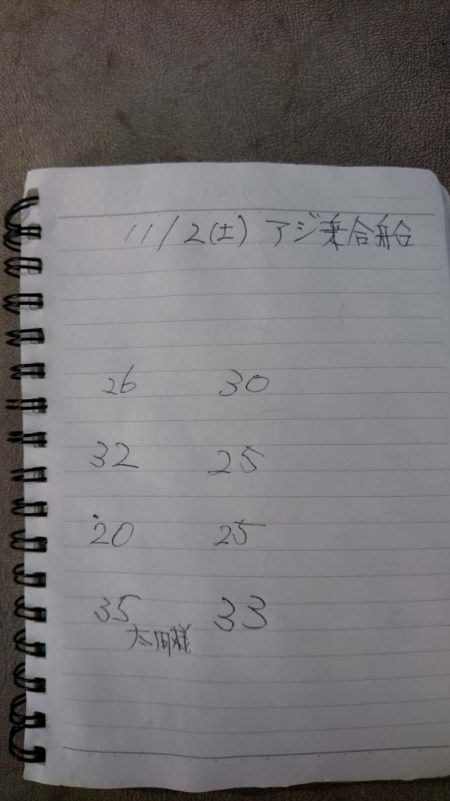 11/2(土) アジ乗合船
26 30
32 25
20 25
35 33
太田様